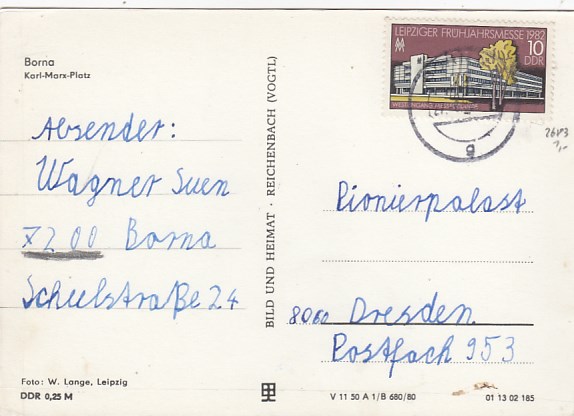 Borna
Karl-Marx-Platz
Absender:
Wagner Suen
7200 Borna
Schulstraße 24
Foto: W. Lange, Leipzig
DDR 0,25 M
BILD UND HEIMAT · REICHENBACH (VOGTL)
LEIPZIGER FRÜHJAHRSMESSE 1982
MM
10
DDR
g
2683
1,-
Pionierpalast
8060 Dresden
Postfach 953
V 11 50 A 1/B 680/80
01 13 02 185